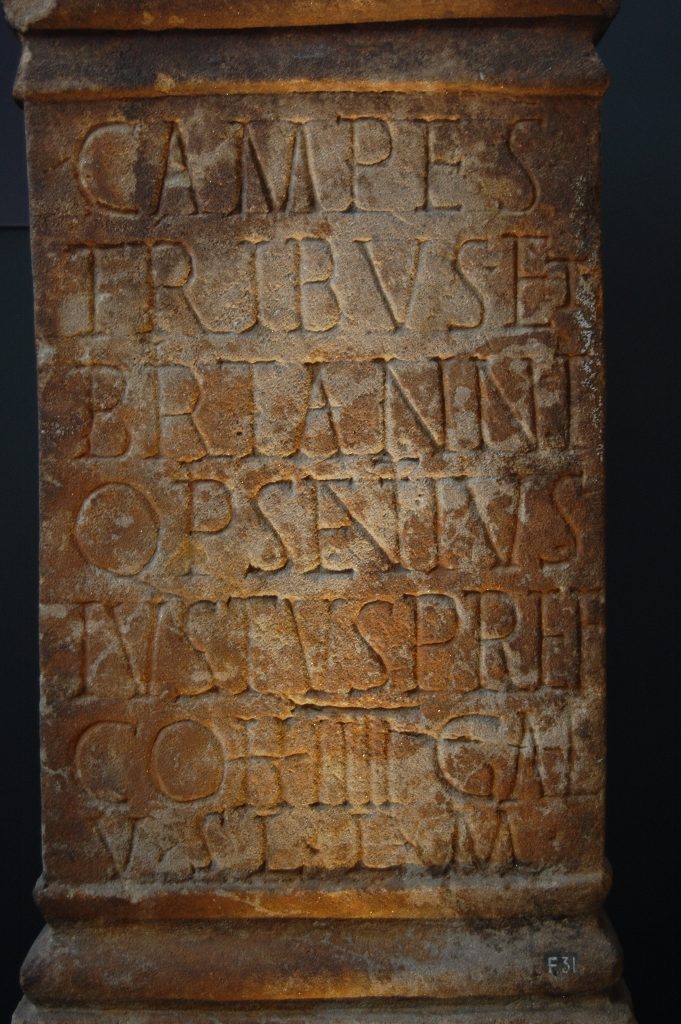 CAMPES
TRIBVS ET
BRITANNI
Q PISENTIVS
IVSTVS PREF
COH IIII GAL
V S L L M
F 31